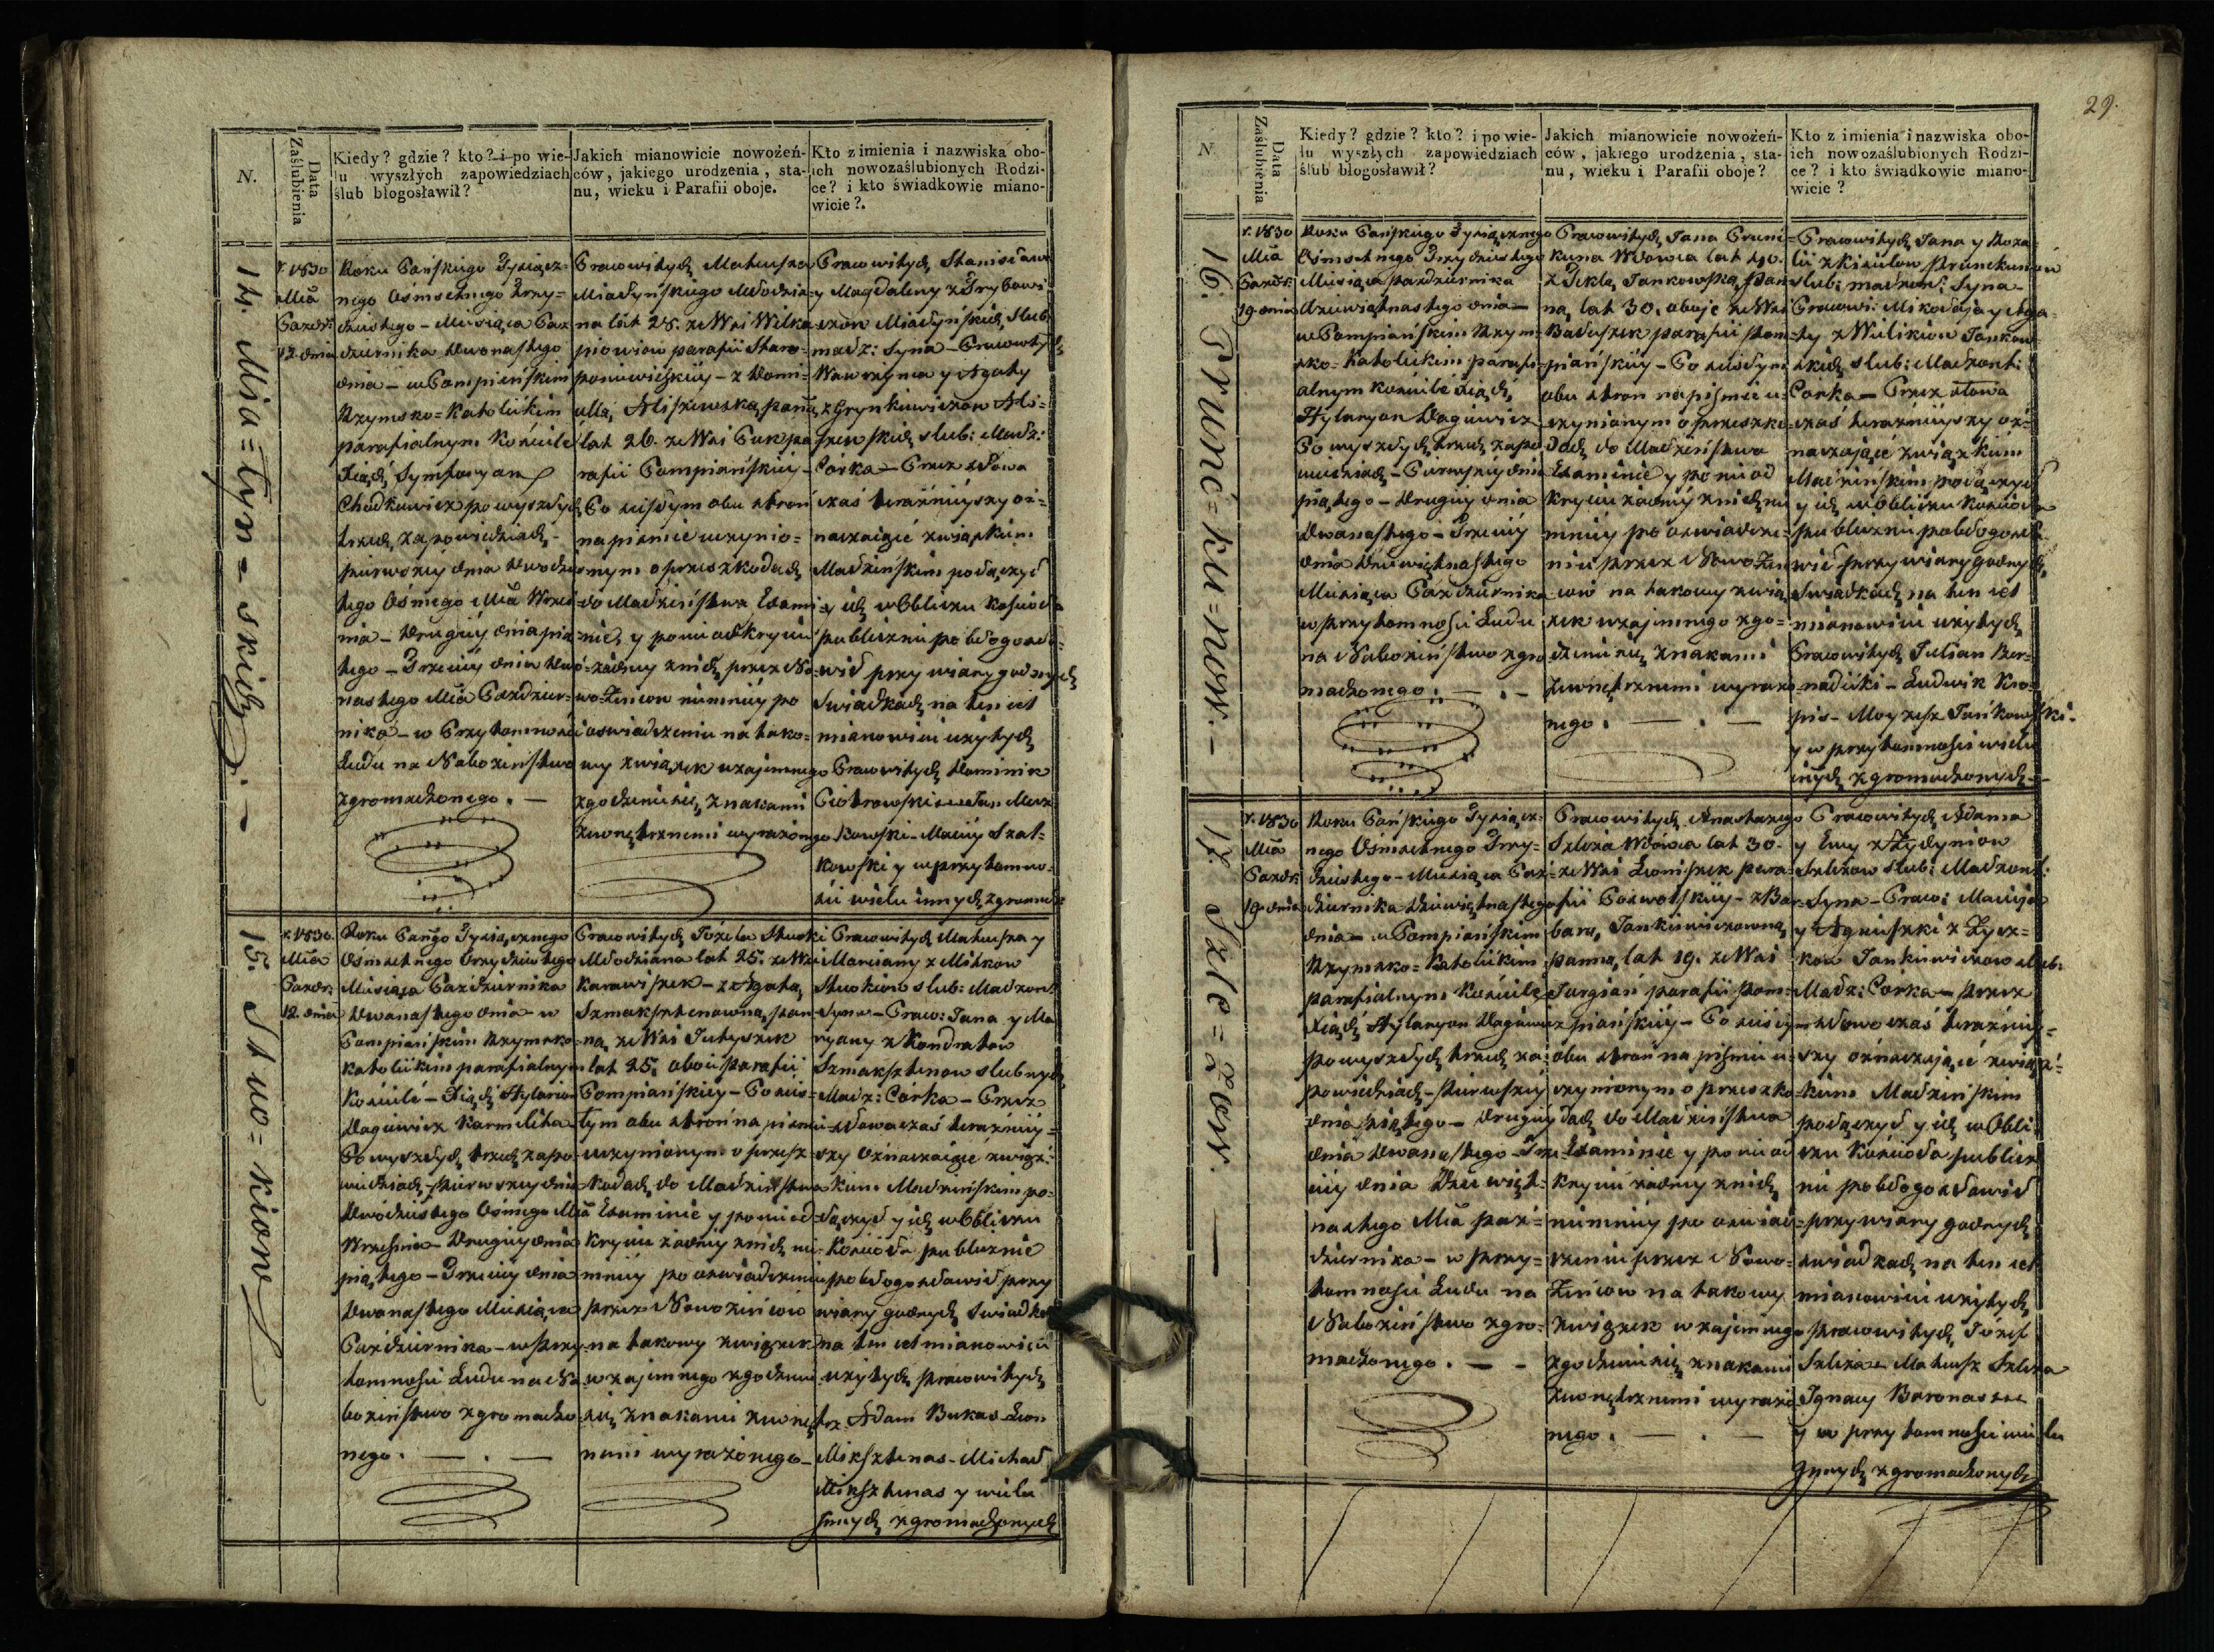 N.
Data Zaślubienia
Kiedy? gdzie? kto? i po wie-
lu wyszłych zapowiedziach
ślub błogosławił?
Jakich mianowicie nowożeń-
ców, jakiego urodzenia, sta-
nu, wieku i Parafii oboje.
Kto z imienia i nazwiska obo-
ich nowozaślubionych Rodzi-
ce? i kto świadkowie miano-
wicie?.
14. Mia=łyn=skich
r. 1830
Mca
Paździ:
12. dnia
Roku Pańskiego Tysiącz-
nego Ośmsetnego Trzy=
dziestego - Miesiąca Paz
dziernika dwonastego
dnia - w Pompiańskim
Rzymsko=Katolickim
parafialnym Kościele
Xiądz Symforyan
Chodkiewicz po wyszłych
trzech zapowiedziach -
pierwszey dnia dwódzies
tego Ośmego Mca Wrześ
nia - drugiéy dnia pią
tego - Trzeciéy dnia dwó=
nastego Mca Październ=
nika - w Przytomności
Ludu na Nabożeństwo
zgromadzonego. —
Prawowitych Mateusza
Miałyńskiego Młodzia=
na lat 28. ze Wsi Wilka
piowiow parafii Staro=
poniewiezkiéy - z Domi=
cellą Aliszewską panną
lat 26. ze Wsi Puk pa
rafii Pompiańskiéy -
Po ścisłym obu stron
na piśmie uczynio=
nym o przeszkodach
do Małżeństwa Exami=
nie, y po nieodkryciu
żadney z nich, przez No=
wo-Żeńcow niemniéy po
oswiadczeniu na tako=
wy związek wzajemnego
zgodzenia się, znakami
zewnętrznemi wyrażonego
Prawowitych Stanisława
y Magdaleny z Grybowi
czow Miałyńskich, Slub:
małż: Syna - Prawowitych
Wawrzynca y Agaty
z Grynkiewiczow Ali=
szewskich slub: Małż:
Córka - Przez słowa
czas teraźnieyszy oz=
naczaiące związkiem
Małżeńskim połączył
y ich w Obliczu Kościoła
publicznie pobłogosła=
wił przy wiary godnych
Swiadkach na ten cel
mianowicie użytych
Prawowitych Dominik
Piotrowski - Jan Mac
kowski - Maciéy Szat-
kowski y w przytomno-
ści wielu innych zgromadz
15. Stuo=kiow
r. 1830.
Mca
Paździ:
12. dnia
Roku Pańgo Tysiącznego
Osmsetnego trzydziestego
Miesiąca Października
Dwanastego dnia - w
Pompiańskim Rzymsko
katolickim parafialnym
Kościele - Xiądz Hylarion
Dagiewicz Karmelita
Po wyszłych trzech zapo=
wiedziach - pierwszey dnia
Dwódziestego Osmego Mca
Września - Drugiey dnia
piątego - Trzeciéy dnia
Dwanastego Miesiąca
Października - w Przy
tomności Ludu na Na
bożeństwo zgromadzo
nego. — . —
Prawowitych Józefa Stuoki
Młodziana lat 25. ze Wsi
Karawiszek - z Agatą
Szmaksztenowną, pan
ną ze Wsi Jutyszek
lat 25. oboie parafii
Pompiańskiéy - Po ścis=
łym obu stron na piśmie
uczynionym o przesz=
kodach do Małżeństwa
Examinie y po nieod=
kryciu żadney z nich nie=
mniéy po oswiadczeniu
przez Nowożeńców
na takowy związek
wzajemnego zgodzenia
się znakami zewnętrz
nemi wyrażonego -
Prawowitych Mateusza y
Maryanny z Milkow
Stuokiow slub: Małżon:
Syna - Praw: Jana y Ma
ryany z Kondratow
Szmaksztenow slubnych
Małż: Córka - Przez
słowa czas teraźniéy=
szy oznaczaiące związ=
kiem Małżeńskim po=
łączył y ich w Obliczu
Kościoła publicznie
pobłogosławił przy
wiary godnych Swiadkach
na ten cel mianowicie
użytych prawowitych
Adam Bukas Leon
Miksztenas - Michał
Miksztenas y wielu
Innych zgromadzonych
29.
N.
Data Zaślubienia
Kiedy? gdzie? kto? i po wie-
lu wyszłych zapowiedziach
ślub błogosławił?
Jakich mianowicie nowożeń-
ców, jakiego urodzenia, sta-
nu, wieku i Parafii oboje?
Kto z imienia i nazwiska obo-
ich nowozaślubionych Rodzi-
ce? i kto świadkowie miano-
wicie?
16. Prune=ku=now. -
r. 1830
Mca
Paździ:
19. dnia
Roku Pańskiego Tysiącznego
Ośmsetnego Trzydziestego
Miesiąca października
dziewiątnastego dnia -
w Pompiańskim Rzym=
sko-Katolickim parafi=
alnym kościele Xiądz
Hylaryon Dagiewicz
Po wyszłych trzech zapo
wiedziach - Pierwszéy dnia
piątego - drugiéy dnia
dwanastego - Trzeciéy
dnia dziewiętnastego
Miesiąca Października
w przytomności Ludu
na Nabożeństwo zgro
madzonego. — . —
Prawowitych Jana Prune=
kuna Wdowca lat 40.
z Teklą Jankowską, Pan
ną lat 30. oboje ze Wsi
Baluszek parafii pom=
piańskiéy - Po ścisłym
obu stron na piśmie u=
czynionym o przeszko=
dach do Małżeństwa
Examinie y po nieod
kryciu żadnéy z nich, nie
mniéy po oswiadcze=
niu przez Nowożeń
cow na takowy zwią
zek wzajemnego zgo=
dzenia się znakami
zewnętrznemi wyrażo
nego. — . —
Prawowitych Jana y Roza=
lii z Kisielow Prunekunow
slub: małżon: Syna -
Prawowi: Mikołaja y Aga=
ty z Wilikiow Jankow
skich slub: Małżonk:
Córka - Przez słowa
czas teraźnieyszy oz=
naczające związkiem
Małżeńskim połączył
y ich w Obliczu Kościoła
publicznie pobłogosła
wił przy wiary godnych
Swiadkach na ten cel
mianowicie użytych
Prawowitych Julian Ber=
nadzicki - Ludwik Kro=
pis - Moyzesz Jankowski -
y w przytomności wielu
inych zgromadzonych -
17. Szle=zow. —
r. 1830
Mca
Paździ:
19 dnia
Roku Pańskiego Tysiącz=
nego Ośmsetnego Trzy=
dziestego - Miesiąca Paź=
dziernika dziewiętnastego
dnia - w Pompiańskim
Rzymsko=Katolickim
parafialnym Kościele
Xiądz Hylaryon Dagiewicz
po wyszłych trzech za=
powiedziach - pierwszéy
dnia piątego - drugiéy
dnia dwanastego - Trze
ciéy dnia dziewięt=
nastego Mca paź=
dziernika - w przy=
tomności Ludu na
Nabożeństwo zgro=
madzonego. — -
Prawowitych Anastazego
Szleża Wdowca lat 30.
ze Wsi Leoniszek para=
fii Poswolskiéy - z Bar=
barą, Jankiewiczowną,
panną, lat 19. ze Wsi
Jurgian parafii pom=
piańskiéy - Po ścisłym
obu stron na piśmie u=
czynionym o przeszko=
dach do Małżeństwa
Examinie y po nieod
kryciu żadney z nich,
niemniéy po oswiad=
czeniu przez Nowo=
Żeńcow na takowy
związek wzajemnego
zgodzenia się znakami
zewnętrznemi wyrażo
nego. — . —
Prawowitych Adama
y Ewy z Żydyniow
Szleżow slub: Małżonk:
Syna - Praw: Macieja
y Agnieszki z Łycz=
kow Jankiewiczow slub:
Małż: Córka - przez
słowa czas teraźniey=
szy oznaczające związ=
kiem Małżeńskim
połączył y ich w Obli
czu Kościoła public
nie pobłogosławił
przy wiary godnych
świadkach na ten cel
mianowicie użytych
prawowitych Józef
Szleża - Mateusz Szleża
Ignacy Baronas
y w przytomności wielu
Innych zgromadzonych